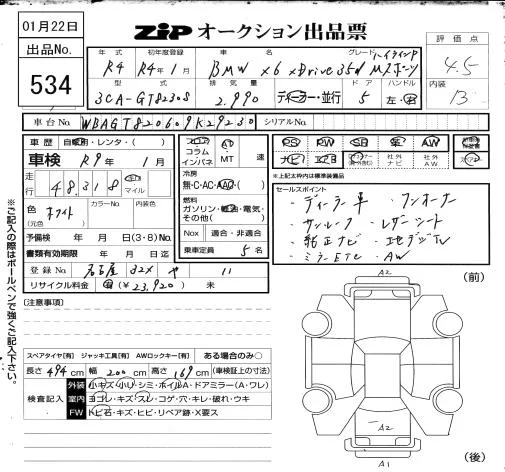 01月22日
出品No.
534
ZIP オークション出品票
評価点
4.5
内装
B
年式 初年度登録 車名 グレード
R4 R4年1月 BMW X6 xDrive35d Mスポーツ
型式 排気量 ドア ハンドル
3CA-GT8230S 2,990 ディーラー・並行 5 左・右
車台No. WBAGT820609K29230 シリアルNo.
車歴 自家用・レンタ・( )
車検 R9年1月
走行 48,318 km マイル
色 ホワイト
(元色) カラーNo. 内装色
予備検 年 月 日(3・8)No.
書類有効期限 年 月 日迄
登録No. 名古屋 32X や 11
リサイクル料金 (¥23,920) 未
コラム
インパネ
AT
MT 速
冷房
無・C・AC・AAC・( )
燃料
ガソリン・軽油・電気・
その他( )
Nox 適合・非適合
乗車定員 5名
PS PW SR 革 AW
ナビ エアB 社外ナビ 社外AW
※上記太わ内は標準装備品
セールスポイント
・ディーラー車 ・ワンオーナー
・サンルーフ ・レザーシート
・純正ナビ ・地デジTV
・ミラーETC ・AW
[注意事項]
スペアタイヤ[有] ジャッキ工具[有] AWロックキー[有] ある場合のみ○
長さ 494 cm 幅 200 cm 高さ 169 cm (車検証上の寸法)
検査記入
外装 小キズ・小リ・シミ・ホイルA・ドアミラー(A・ワレ)
室内 ヨゴレ・キズ・スレ・コゲ・穴・キレ・破れ・ウキ
FW トビ石・キズ・ヒビ・リペア跡・X要ス
※ご記入の際はボールペンで強くご記入下さい。
A2
(前)
A2
A1
(後)